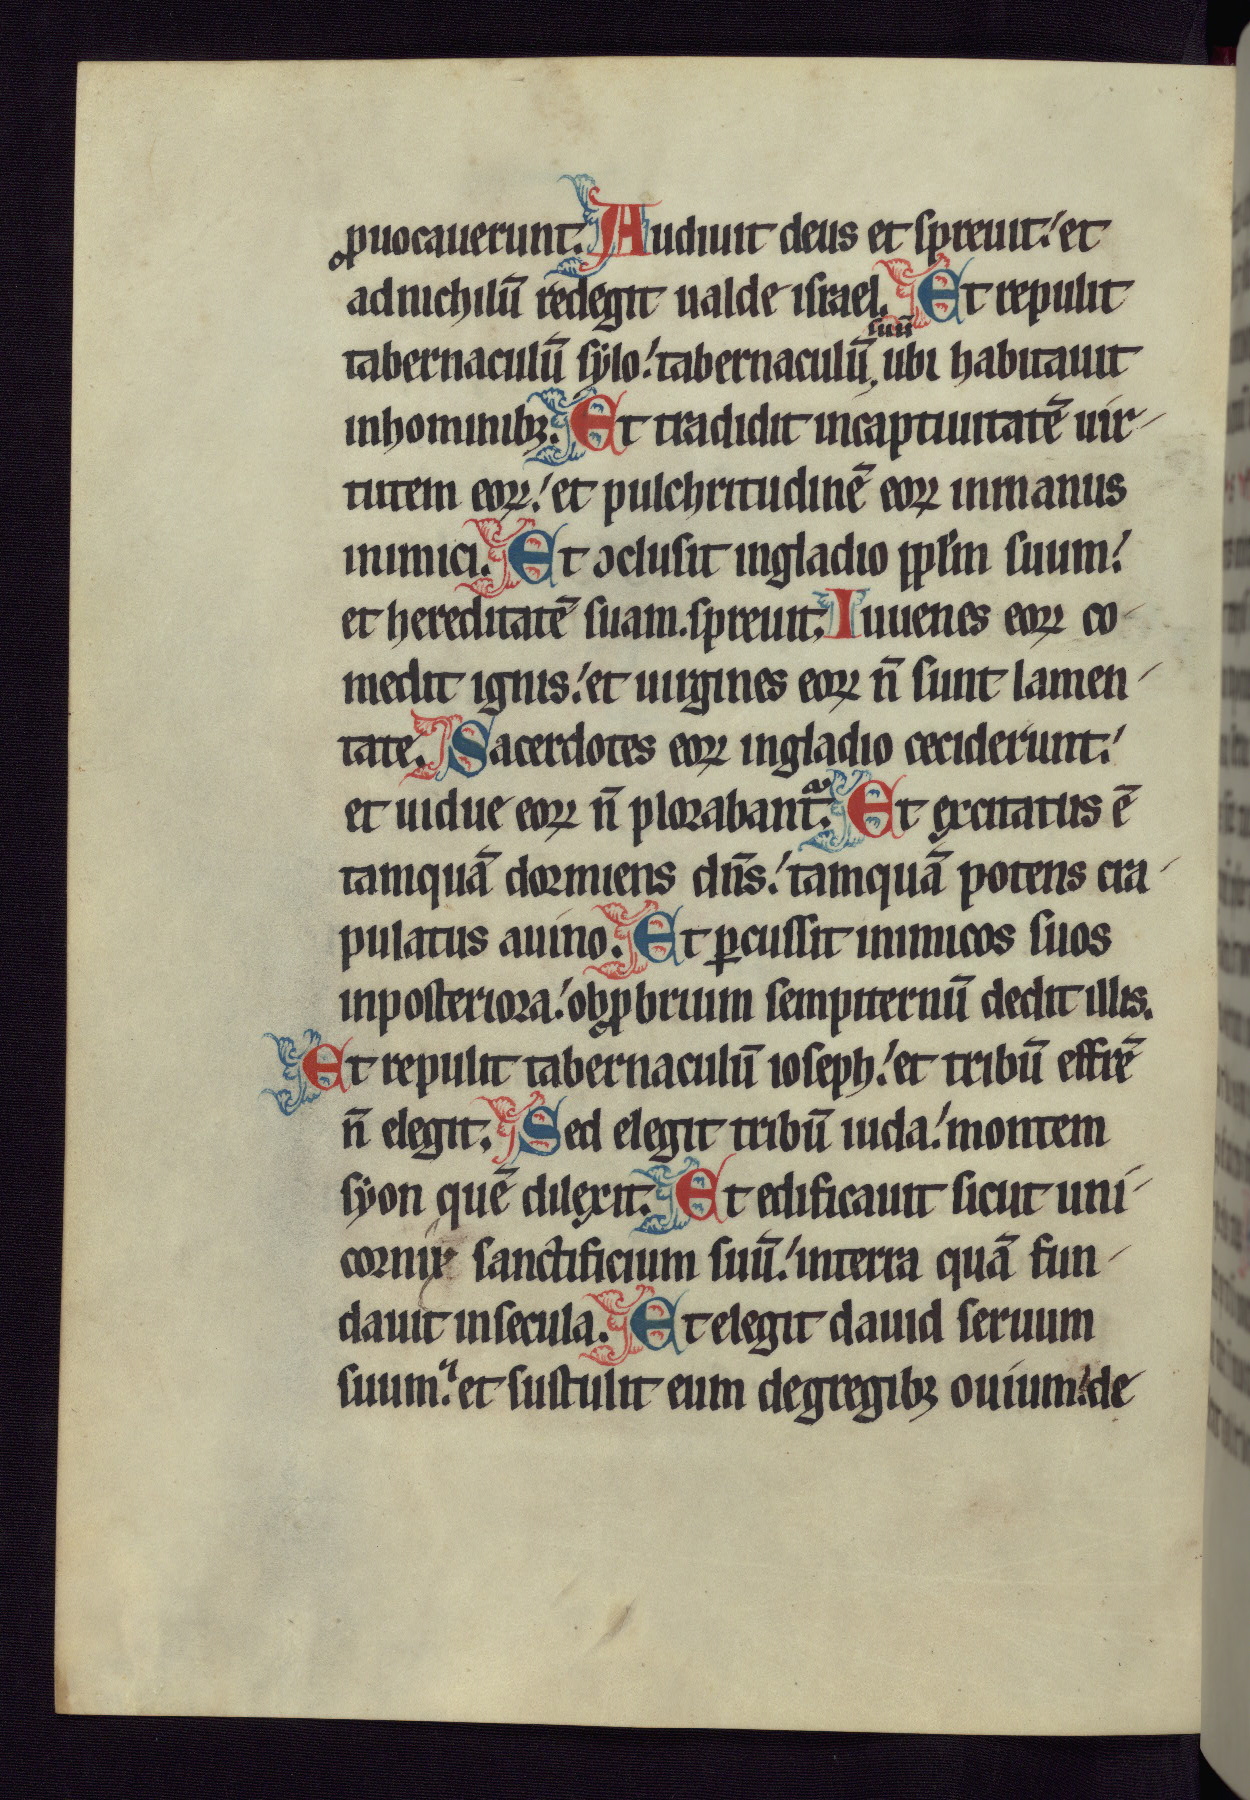 ꝓuocauerunt. Audiuit deus et spreuit: et
adnichilū redegit ualde israel. Et repulit
tabernaculū sẏlo: tabernaculū suū ubi habitauit
inhominibꝫ. Et tradidit incaptiuitatē uir-
tutem eoꝝ: et pulchritudinē eoꝝ inmanus
inimici. Et ɔclusit ingladio ppl̄m suum:
et hereditatē suam spreuit. Iuuenes eoꝝ co-
medit ignis: et uirgines eoꝝ n̄ sunt lamen-
tate. Sacerdotes eoꝝ ingladio ceciderunt:
et uidue eoꝝ n̄ plorabant᷑. Et excitatus ē
tamquā dormiens dn̄s: tamquā potens cra-
pulatus auino. Et ꝑcussit inimicos suos
inposteriora: obꝓbrium sempiternū dedit illis.
Et repulit tabernaculū ioseph: et tribū effrē
n̄ elegit. Sed elegit tribū iuda: montem
sẏon quē dilexit. Et edificauit sicut uni-
cornix sanctificium suū: interra quā fun-
dauit insecula. Et elegit dauid seruum
suum: et sustulit eum degregibꝫ ouium: de